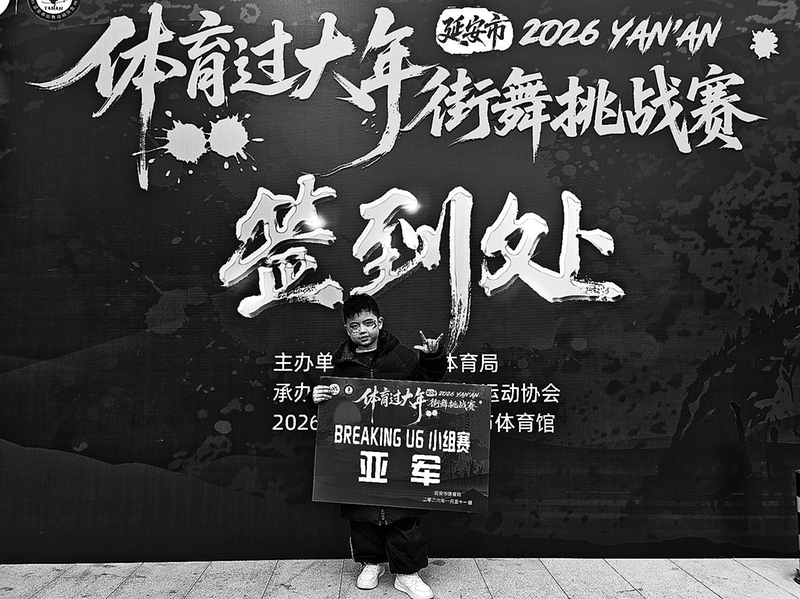 体育过大年
延安市 2026 YAN'AN
街舞挑战赛
签到处
主办单 体育局
承办 运动协会
2026 体育馆
体育过大年 2026 YAN'AN
街舞挑战赛
BREAKING U6 小组赛
亚军
延安市体育局
二〇二六年一月三十一日